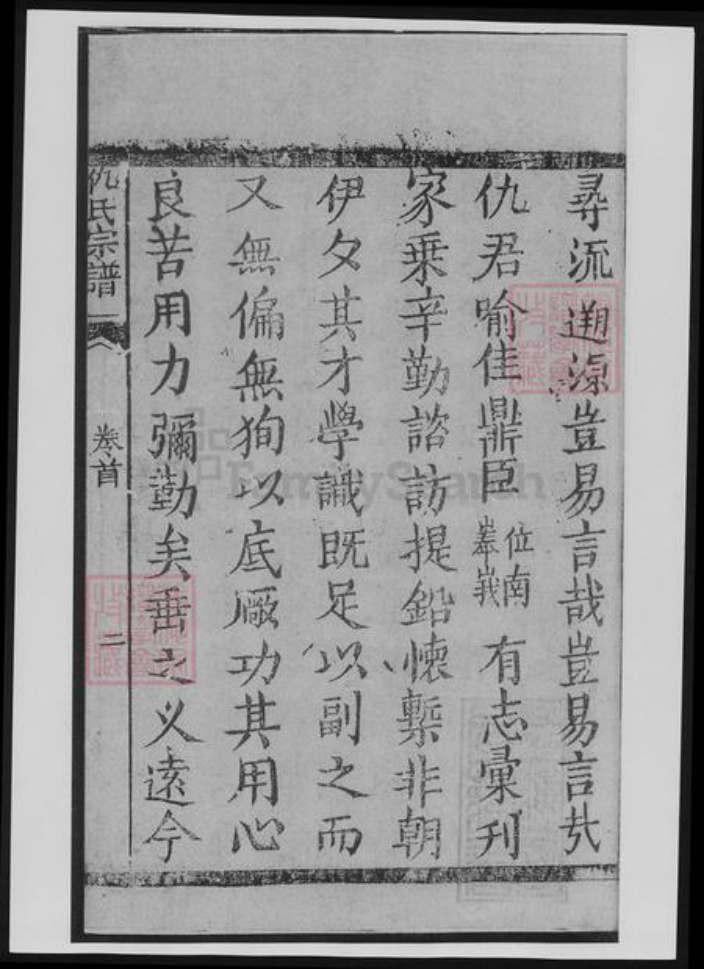 尋流遡源豈易言哉豈易言哉
仇君喻佳鼎臣位南峯峩有志彙刊
家乗辛勤諮訪提鉛懷槧非朝
伊夕其才學識既足以副之而
又無偏無狥以底厥功其用心
良苦用力彌勤矣垂之乂遠今
仇氏宗譜
卷首
二
FamilySearch